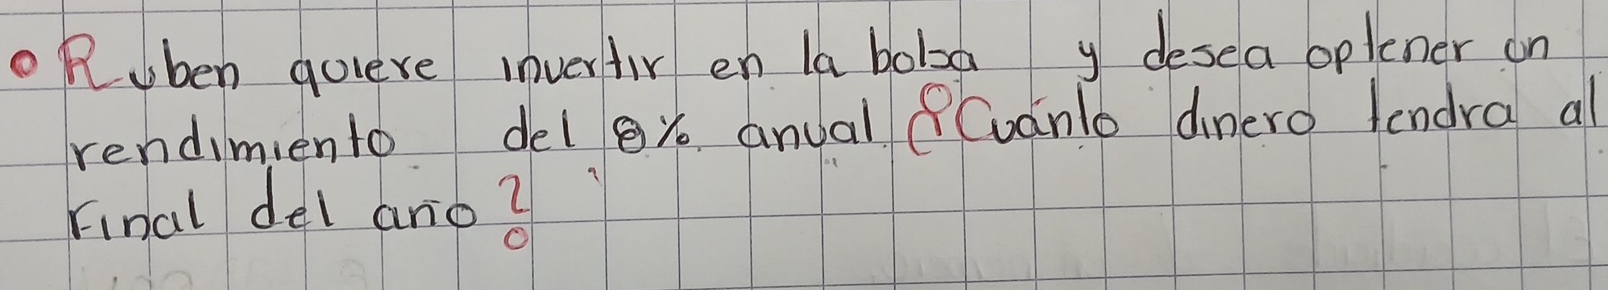 Ruben quiere invertir en la bolsa y desea optener un
rendimiento del 8% anual. ¿Cuánto dinero tendra al
Final del año?